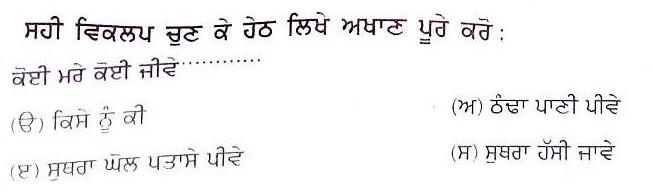 ਸਹੀ ਵਿਕਲਪ ਚੁਣ ਕੇ ਹੇਠ ਲਿਖੇ ਅਖਾਣ ਪੂਰੇ ਕਰੋ :
ਕੋਈ ਮਰੇ ਕੋਈ ਜੀਵੇ.............
(ੳ) ਕਿਸੇ ਨੂੰ ਕੀ (ਅ) ਠੰਢਾ ਪਾਣੀ ਪੀਵੇ
(ੲ) ਸੁਥਰਾ ਘੋਲ ਪਤਾਸੇ ਪੀਵੇ (ਸ) ਸੁਥਰਾ ਹੱਸੀ ਜਾਵੇ